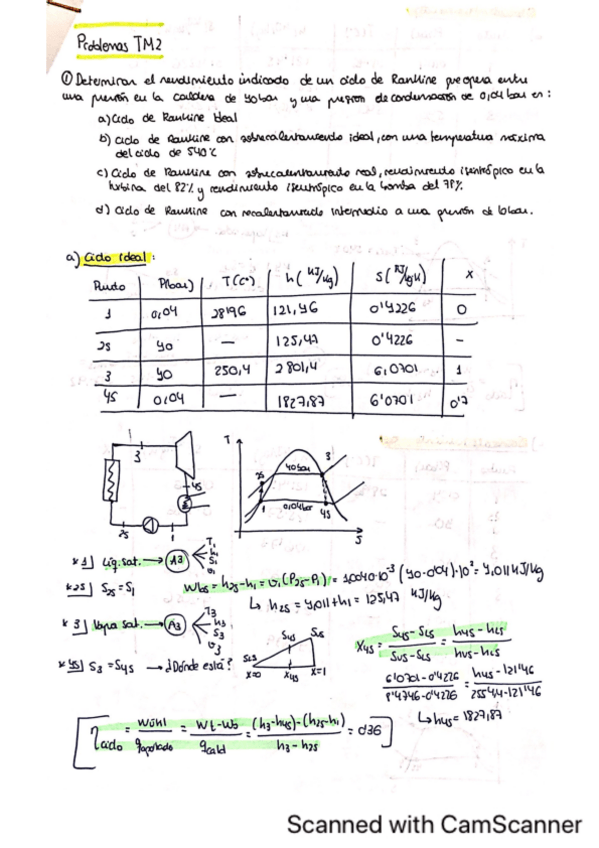 Problemas TM2
① Determinar el rendimiento indicado de un ciclo de Rankine que opera entre
una presión en la caldera de 40 bar y una presión de condensación de 0,04 bar en:
a) Ciclo de Rankine Ideal
b) Ciclo de Rankine con sobrecalentamiento ideal, con una temperatura máxima
del ciclo de 540°C
c) Ciclo de Rankine con sobrecalentamiento real, rendimiento isentrópico en la
turbina del 82% y rendimiento isentrópico en la bomba del 78%.
d) Ciclo de Rankine con recalentamiento intermedio a una presión de 10bar.
a) Ciclo ideal:
Punto P(bar) T(Cº) h(KJ/Kg) S(KJ/kgK) X
1 0,04 28'96 121,46 0'4226 0
2s 40 — 125,47 0'4226 —
3 40 250,4 2801,4 6,0701 1
4s 0,04 — 1827,87 6'0701 0'7
1
3
4s
2
2s
1
T
40bar
3
2s
0,04bar
1
4s
S
*1] Líq. sat. → A3
T1
h1
S1
v1
*2s] S2s = S1
Wbs = h2s-h1 = v1(P2s-P1) = 1,0040·10⁻³ (40-0'04)·10² = 4,011 KJ/Kg
↳ h2s = 4,011+h1 = 125,47 KJ/Kg
*3] Vapor sat. → A3
T3
h3
S3
v3
*4s] S3 = S4s → ¿Dónde está?
SLs
S4s
SVs
X=0
X4s
X=1
X4s = S4s-SLs / SVs-SLs = h4s-hLs / hVs-hLs
6'0701-0'4226 / 8'4746-0'4226 = h4s-121'46 / 2554,4-121'46
↳ h4s = 1827,87
[ηciclo = Wútil / qaportado = Wt-Wb / qcald = (h3-h4s)-(h2s-h1) / h3-h2s = 0'36]
Scanned with CamScanner